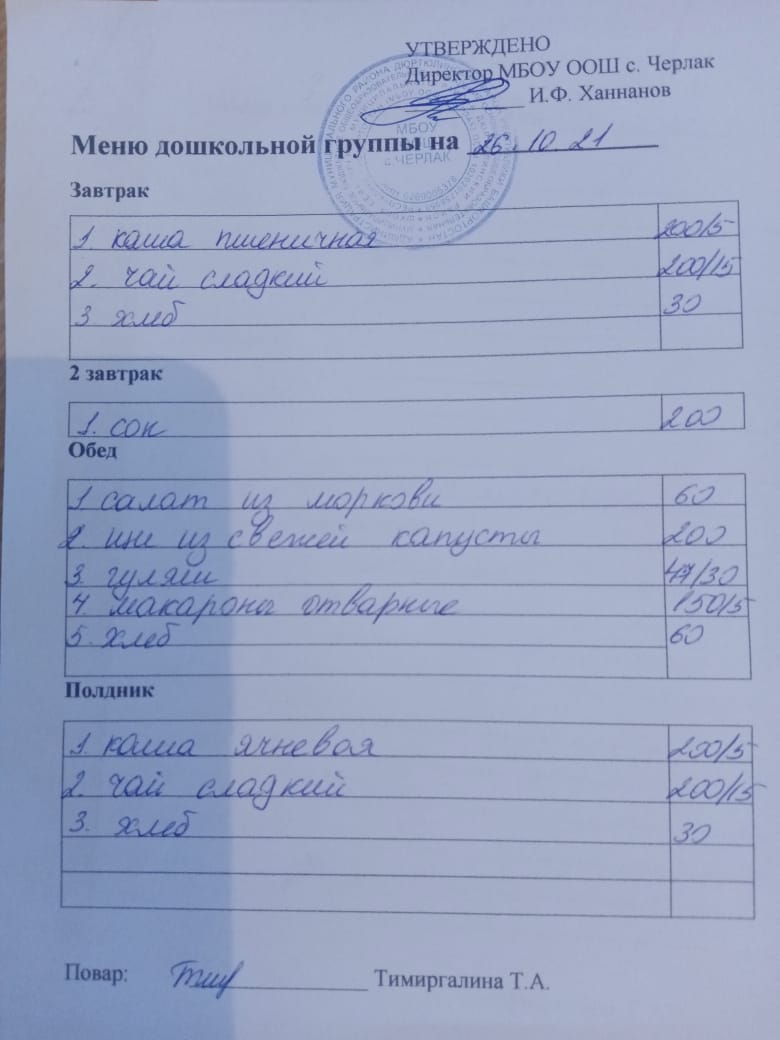 УТВЕРЖДЕНО
Директор МБОУ ООШ с. Черлак
И.Ф. Ханнанов
МБОУ
с. ЧЕРЛАК
Меню дошкольной группы на 26.10.21
Завтрак
1. каша пшеничная 200/5
2. чай сладкий 200/15
3 хлеб 30
2 завтрак
1. сок 200
Обед
1 салат из моркови 60
2. щи из свежей капусты 200
3. гуляш 47/30
4. макароны отварные 150/5
5. хлеб 60
Полдник
1. каша ячневая 200/5
2. чай сладкий 200/15
3. хлеб 30
Повар: Тимиргалина Т.А.